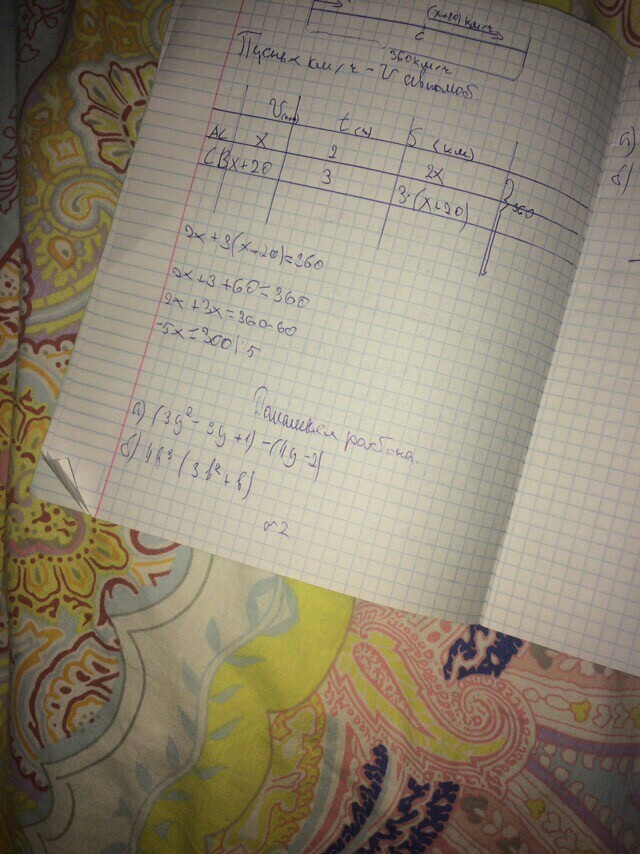 (x+20) км/ч
C
360 км/ч
Пусть x км/ч - V автомоб.
V(км/ч) t(ч) S (км)
AC x 2 2x
CB x+20 3 3·(x+20) 360
2x+3(x+20)=360
2x+3+60=360
2x+3x=360-60
-5x=300|:5
Домашняя работа.
а) (3y²-3y+1)-(4y-2)
б) 4b³(3b²+b)
№2
а)
б)